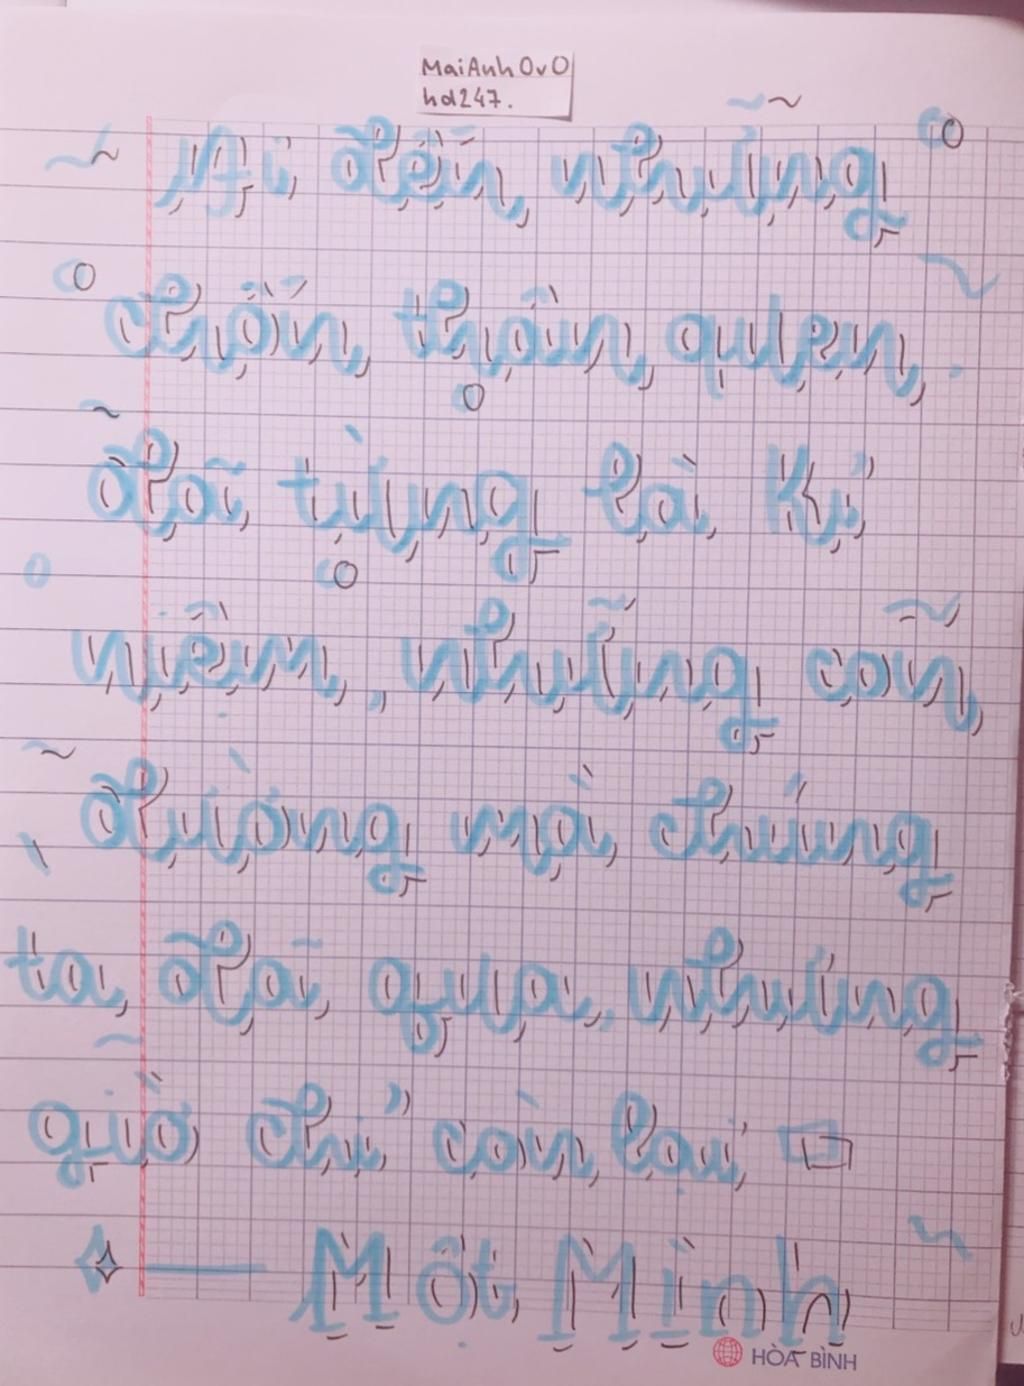 MaiAnh0v0
hd247.
Đi đến những
chốn thân quen.
đã từng là kỉ
niệm, những con
đường mà chúng
ta đã qua. nhưng
giờ chỉ còn lại
Một Mình
HÒA BÌNH